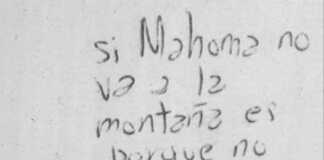 si Mahoma no
va a la
montaña es
porque no